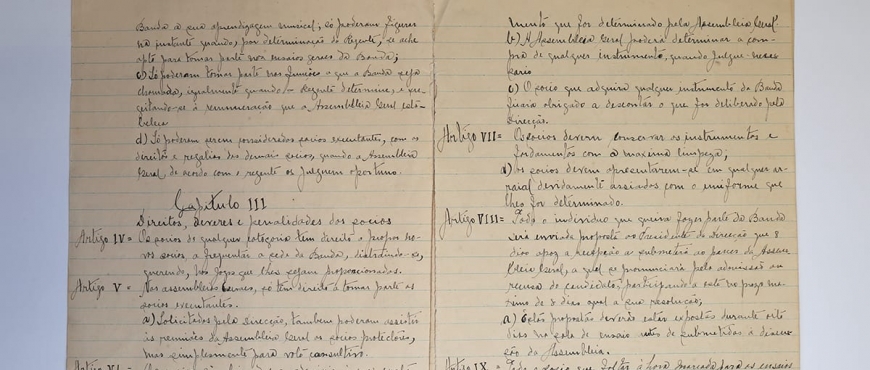 Banda a sua aprendizagem musical, só poderam figurar
na instante quando, por determinação do Regente, se ache
apto para tomar parte nos ensaios geraes da Banda;
c) Só poderam tomar parte nas funções a que a Banda seja
chamada, igualmente quando o Regente determine, e su-
geitando-se á remuneração que a Assembleia Geral esta-
beleça
d) Só poderam serem considerados socios executantes, com os
direitos e regalias dos demais socios, quando a Assembleia
Geral, de acordo com o regente os julguem oportuno.
Capitulo III
Direitos, deveres e penalidades dos socios
Artigo IV = Os socios de qualquer categoria têm direito a propor no-
vos socios, a frequentar a séde da Banda, distraindo-se,
querendo, nos jogos que lhes sejam proporcionados.
Artigo V = Nas assembleias Geraes, só têm direito a tomar parte os
socios executantes.
a) Solicitados pela Direcção, tambem poderam assistir
ás reuniões da Assembleia Geral os socios protectores,
mas simplesmente para voto consultivo.
Artigo VI
mento que for determinado pela Assembleia Geral
b) A Assembleia Geral poderá determinar a com-
pra de qualquer instrumento, quando julgue neces-
sario
c) O socio que adquira qualquer instrumento da Banda
ficará obrigado a descontar o que for deliberado pela
Direcção.
Artigo VII = Os socios deverm conservar os instrumentos e
fardamentos com a maxima limpeza;
a) os socios devem apresentarem-se em qualquer ar-
raial devidamente assiados com o uniforme que
lhes for determinado.
Artigo VIII = Todo o individuo que queira fazer parte da Banda
será enviada proposta ao Presidente da Direcção que 8
dias apoz a recepção a submetterá ao parecer da Assem-
bleia Geral, a qual se pronunciará pela admissão ou
recusa do candidato, participando a este no prazo ma-
ximo de 8 dias qual a sua resolução;
a) Estas propostas deverão estar expostas durante oito
dias na sala de ensaio antes de submetidas á discus-
são da Assembleia.
Artigo IX = Todo o socio que faltar á hora marcada para os ensaios